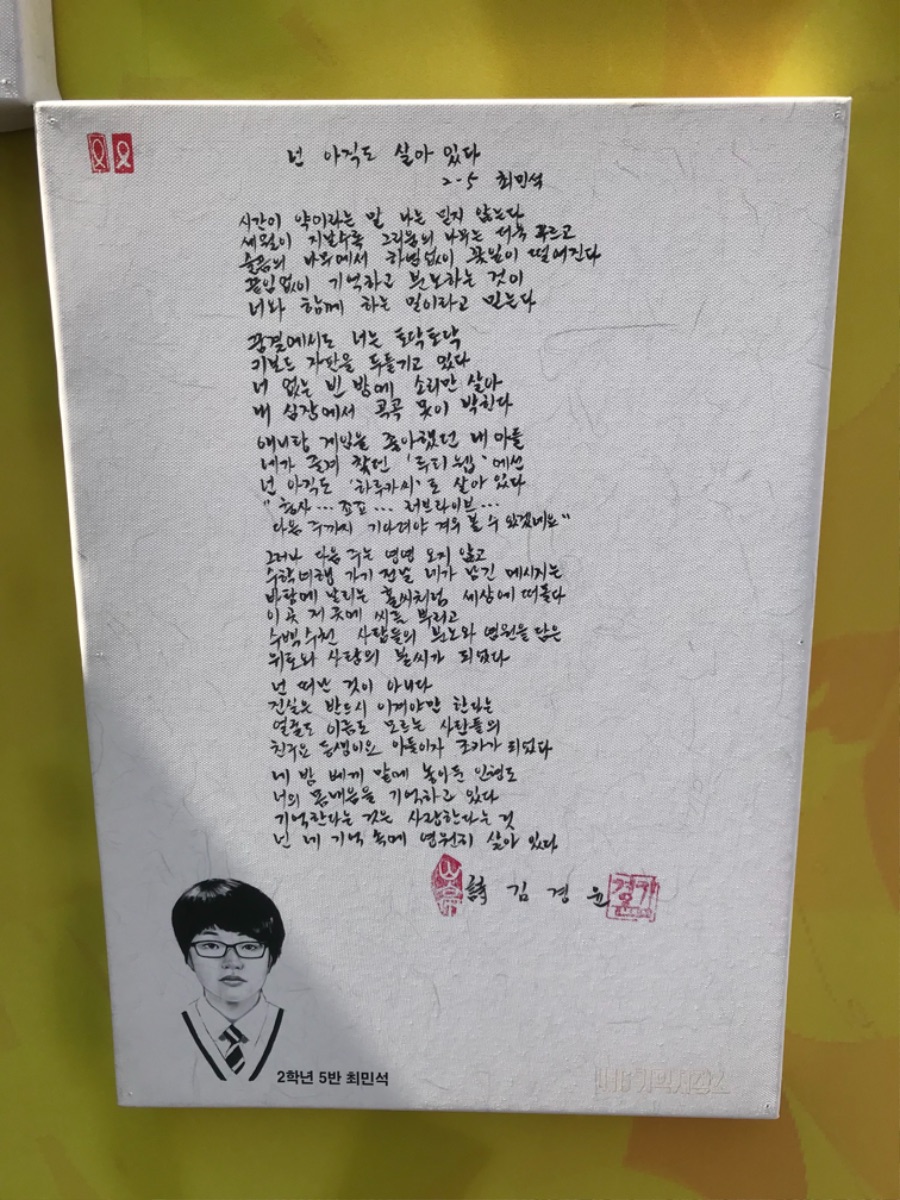 넌 아직도 살아 있다
2-5 최민석
시간이 약이라는 말 나는 믿지 않는다
세월이 지날수록 그리움의 나무는 더욱 푸르고
슬픔의 나무에서 하염없이 꽃잎이 떨어진다
끊임없이 기억하고 분노하는 것이
너와 함께 하는 일이라고 믿는다
꿈결에서도 너는 토닥토닥
키보드 자판을 두들기고 있다
너 없는 빈 방에 소리만 살아
내 심장에서 콕콕 못이 박힌다
애니랑 게임을 좋아했던 내 아들
네가 즐겨 찾던 '루리웹' 에선
넌 아직도 '하루카씨' 로 살아 있다
" 형사 … 죠죠 … 러브라이브 …
다음 주까지 기다려야 겨우 볼 수 있겠네요 "
그러나 다음 주는 영영 오지 않고
수학여행 가기 전날 네가 남긴 메시지는
바람에 날리는 홀씨처럼 세상에 떠돌다
이 곳 저 곳에 씨를 뿌리고
수백 수천 사람들의 분노와 염원을 담은
위로와 사랑의 불씨가 되었다
넌 떠난 것이 아니다
진실은 반드시 이겨야만 한다는
얼굴도 이름도 모르는 사람들의
친구요 동생이요 아들이자 조카가 되었다
네 방 베게 맡에 놓아둔 인형도
너의 몸내음을 기억하고 있다
기억한다는 것은 사랑한다는 것
넌 네 기억 속에 영원히 살아 있다
詩 김 경 윤
2학년 5반 최민석